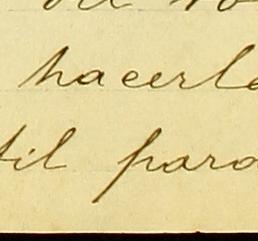 hacerle
til para